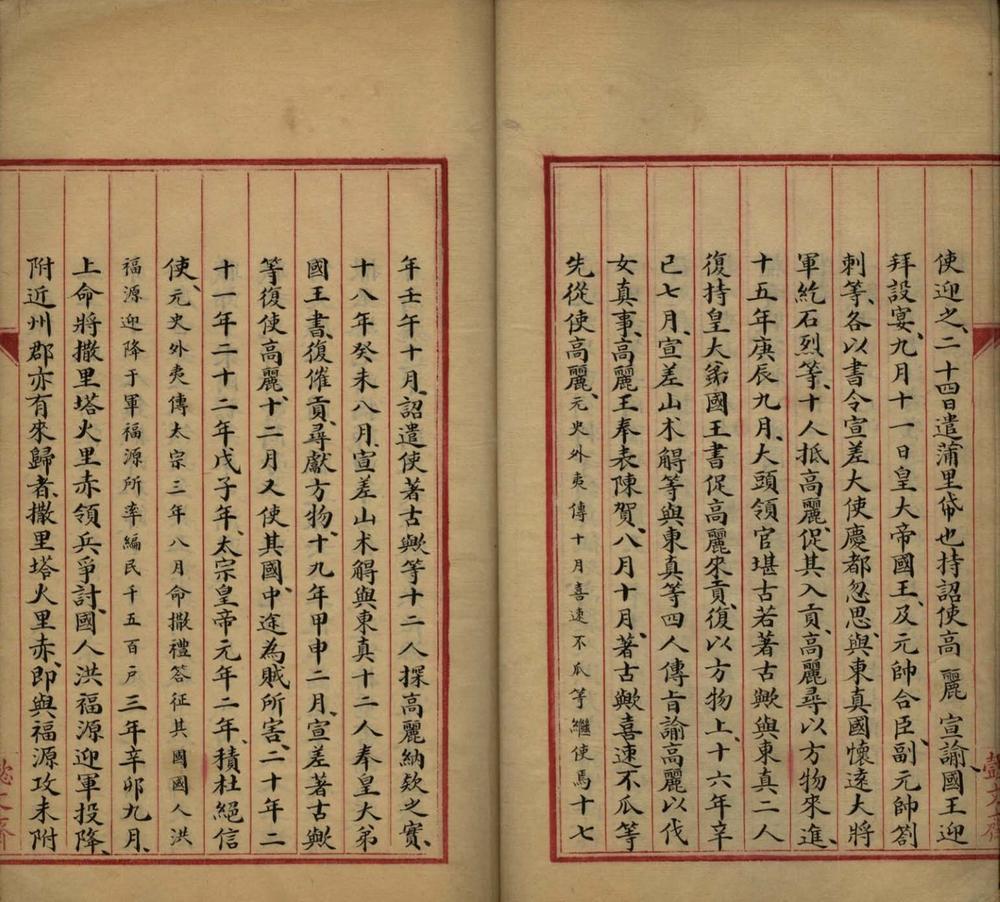 使迎之、二十四日遣蒲里帒也持詔使高麗宣諭、國王迎
拜設宴、九月十一日皇大帝國王、及元帥合臣、副元帥劄
刺等、各以書令宣差大使慶都忽思、與東真國懷遠大將
軍紇石烈等、十人抵高麗、促其入貢、高麗尋以方物來進、
十五年庚辰九月、大頭領官堪古若著古歟與東真二人
復持皇大弟國王書促高麗來貢、復以方物上、十六年辛
巳七月、宣差山朮䚟等與東真等四人傳旨諭高麗以伐
女真事、高麗王奉表陳賀、八月十月、著古歟喜速不瓜等
先從使高麗、元史外夷傳十月喜速不瓜等繼使焉十七
年壬午十月、詔遣使著古歟等十二人探高麗納欵之實、
十八年癸未八月、宣差山朮䚟與東真十二人奉皇大弟
國王書、復催貢、尋獻方物、十九年甲申二月、宣差著古歟
等復使高麗、十二月又使其國、中途為賊所害、二十年二
十一年二十二年戊子年、太宗皇帝元年二年、積杜絕信
使、元史外夷傳太宗三年八月命撒禮答征其國國人洪
福源迎降于軍福源所率編民千五百戶三年辛卯九月、
上命將撒里塔火里赤領兵爭討、國人洪福源迎軍投降、
附近州郡亦有來歸者、撒里塔火里赤、即與福源攻未附